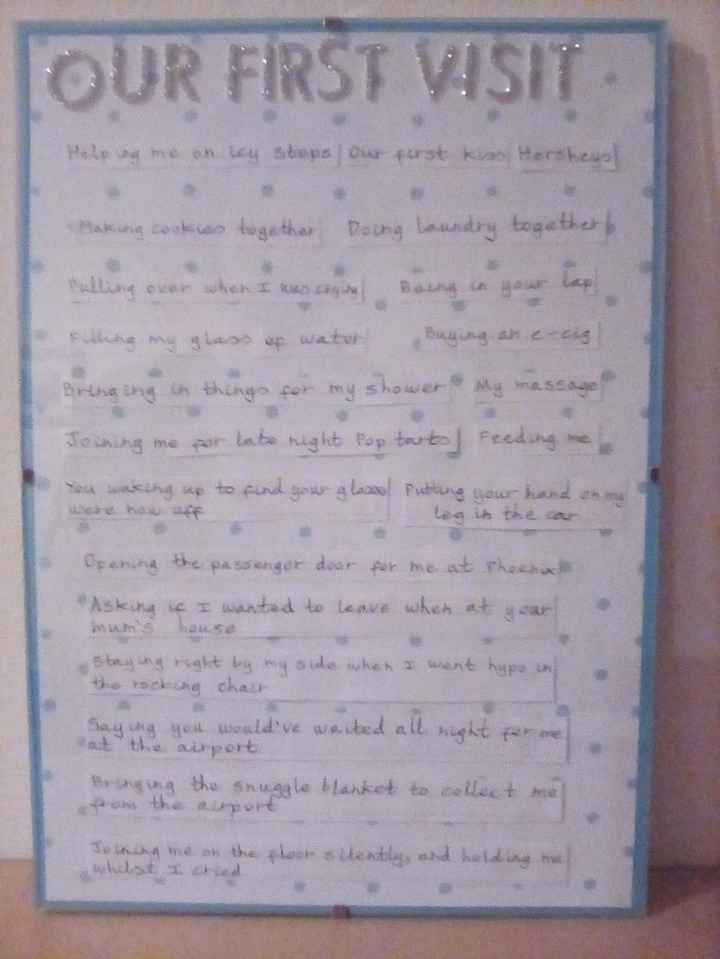 OUR FIRST VISIT
Helping me on icy steps Our first kiss Hersheys
Making cookies together Doing laundry together
Pulling over when I was crying Being in your lap
Filling my glass of water Buying an e-cig
Bringing in things for my shower My massage
Joining me for late night Pop tarts Feeding me
You waking up to find your glasses Putting your hand on my
were now off leg in the car
Opening the passenger door for me at Phoenix
Asking if I wanted to leave when at your
mum's house
Staying right by my side when I went hypo in
the rocking chair
Saying you would've waited all night for me
at the airport
Bringing the snuggle blanket to collect me
from the airport
Joining me on the floor silently, and holding me
whilst I cried